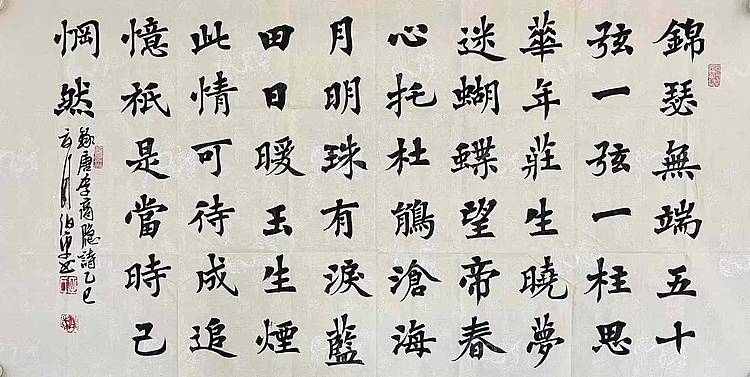 錦瑟無端五十
弦一弦一柱思
華年莊生曉夢
迷蝴蝶望帝春
心托杜鵑滄海
月明珠有淚藍
田日暖玉生煙
此情可待成追
憶祇是當時己
惘然
錄唐李商隱詩乙巳